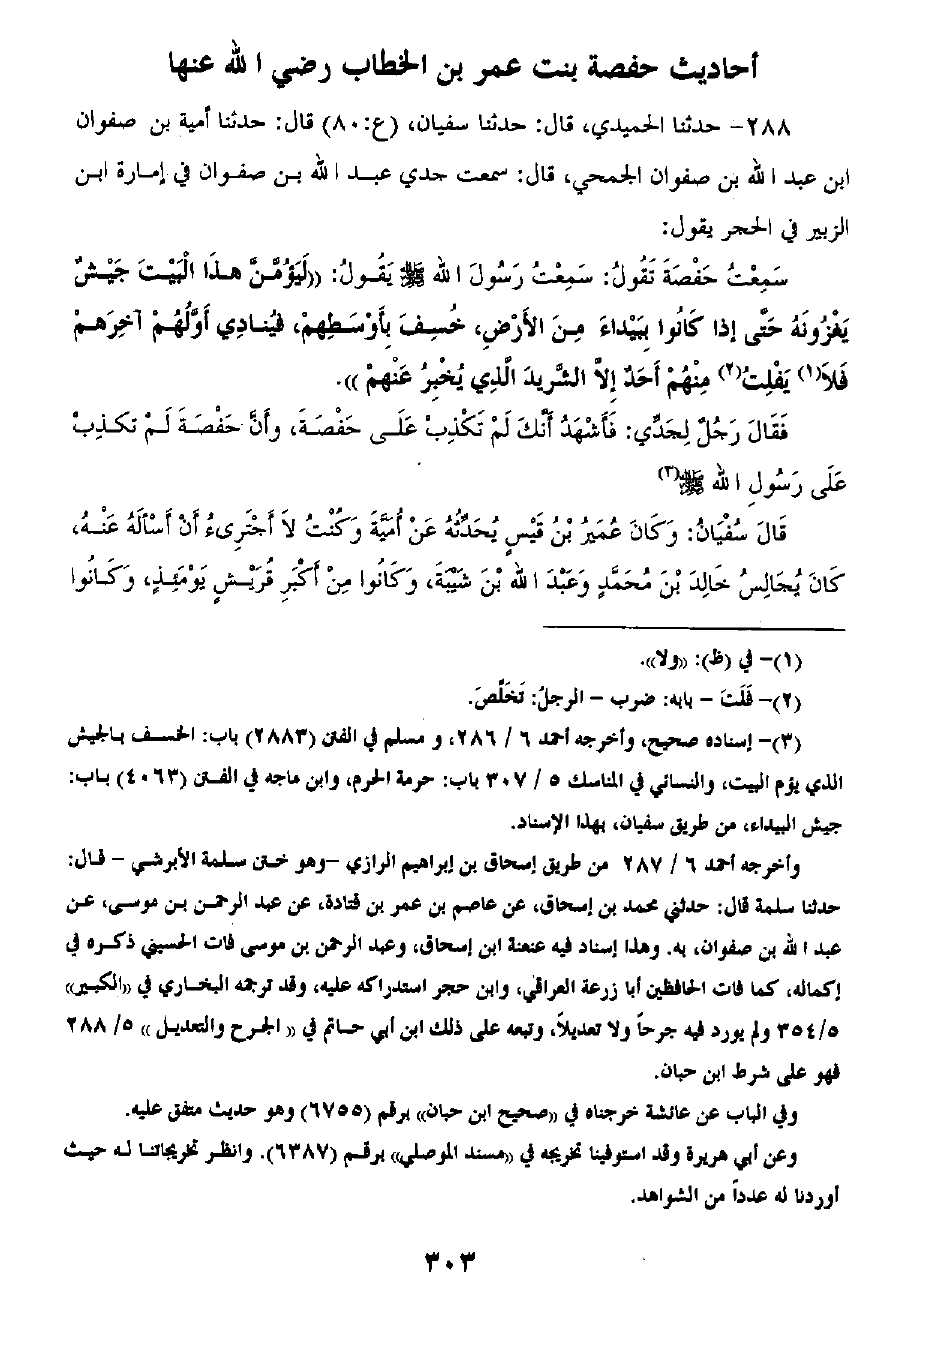 أحاديث حفصة بنت عمر بن الخطاب رضي الله عنها
٢٨٨- حدثنا الحميدي، قال: حدثنا سفيان، (ع:٨٠) قال: حدثنا أمية بن صفوان
ابن عبد الله بن صفوان الجمحي، قال: سمعت جدي عبد الله بن صفوان في إمارة ابن
الزبير في الحجر يقول:
سَمِعْتُ حَفْصَةَ تَقُولُ: سَمِعْتُ رَسُولَ الله ﷺ يَقُولُ: ((لَيَؤُمَّنَّ هذَا الْبَيْتَ جَيْشٌ
يَغْزُونَهُ حَتَّى إذا كَانُوا بِبَيْداءَ مِنَ الأَرْضِ، خُسِفَ بِأَوْسَطِهِمْ، فَيُنادِي أَوَّلُهُمْ آخِرَهمْ
فَلاَ(١) يَفْلِتُ(٢) مِنْهُمْ أَحَدٌ إلاَّ الشَّرِيدَ الَّذِي يُخْبِرُ عَنْهمْ )).
فَقَالَ رَجُلٌ لِجَدِّي: فَأَشْهَدُ أَنَّكَ لَمْ تَكْذِبْ عَلَى حَفْصَةَ، وأَنَّ حَفْصَةَ لَمْ تكذِبْ
عَلَى رَسُولِ الله ﷺ(٣)
قَالَ سُفْيَانُ: وَكَانَ عُمَيرُ بْنُ قَيْسٍ يُحَدِّثُهُ عَنْ أُمَيَّةَ وَكُنْتُ لاَ أَجْتَرِىءُ أَنْ أَسْأَلَهُ عَنْهُ،
كَانَ يُجَالِسُ خَالِدَ بْنَ مُحَمَّدٍ وَعَبْدَ الله بْنَ شَيْبَةَ، وَكَانُوا مِنْ أَكْبَرِ قُرَيْشٍ يَوْمَئِذٍ، وَكَانُوا
(١)- في (ظ): ((ولا)).
(٢)- فَلَتَ - بابه: ضرب - الرجلُ: تَخَلَّصَ.
(٣)- إسناده صحيح، وأخرجه أحمد ٦ / ٢٨٦، و مسلم في الفتن (٢٨٨٣) باب: الخسف بالجيش
الذي يؤم البيت، والنسائي في المناسك ٥ / ٣٠٧ باب: حرمة الحرم، وابن ماجه في الفتن (٤٠٦٣) باب:
جيش البيداء، من طريق سفيان، بهذا الإسناد.
وأخرجه أحمد ٦ / ٢٨٧ من طريق إسحاق بن إبراهيم الرازي -وهو ختن سلمة الأبرشي - قال:
حدثنا سلمة قال: حدثني محمد بن إسحاق، عن عاصم بن عمر بن قتادة، عن عبد الرحمن بن موسى، عن
عبد الله بن صفوان، به. وهذا إسناد فيه عنعنة ابن إسحاق، وعبد الرحمن بن موسى فات الحسيني ذكره في
إكماله، كما فات الحافظين أبا زرعة العراقي، وابن حجر استدراكه عليه، وقد ترجمه البخاري في ((الكبير))
٣٥٤/٥ ولم يورد فيه جرحاً ولا تعديلاً، وتبعه على ذلك ابن أبي حاتم في (( الجرح والتعديل )) ٥/ ٢٨٨
فهو على شرط ابن حبان.
وفي الباب عن عائشة خرجناه في ((صحيح ابن حبان)) برقم (٦٧٥٥) وهو حديث متفق عليه.
وعن أبي هريرة وقد استوفينا تخريجه في ((مسند الموصلي)) برقم (٦٣٨٧). وانظر تخريجاتنا له حيث
أوردنا له عدداً من الشواهد.
٣٠٣